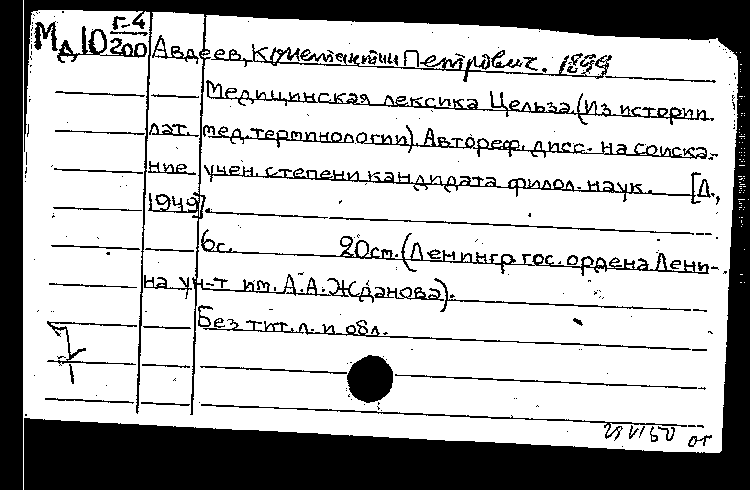 Мд10 г-4/200
Авдеев, Константин Петрович. 1899
Медицинская лексика Цельза. (Из истории
лат. мед. терминологии). Автореф. дисс. на соиска-
ние учен. степени кандидата филол. наук. [Л.,
1949].
6с. 20см. (Ленингр. гос. ордена Лени-
на ун-т им. А.А. Жданова).
Без тит. л. и обл.